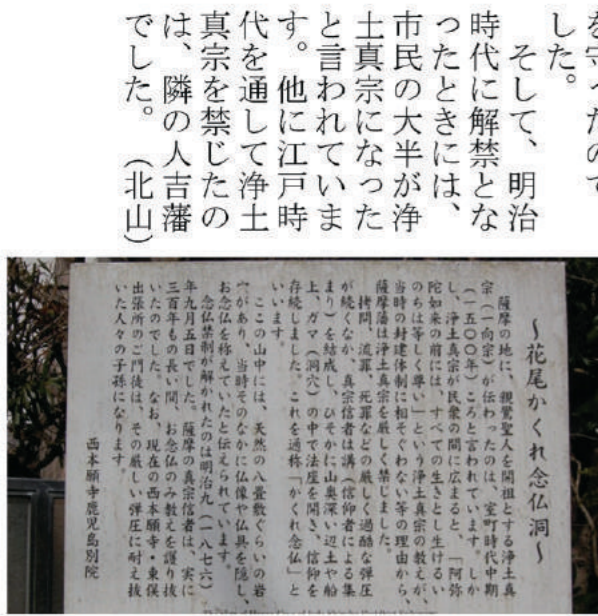 を守ったので
した。
　そして、明治
時代に解禁とな
ったときには、
市民の大半が浄
土真宗になった
と言われていま
す。他に江戸時
代を通して浄土
真宗を禁じたの
は、隣の人吉藩
でした。（北山）
～花尾かくれ念仏洞～
　薩摩の地に、親鸞聖人を開祖とする浄土真
宗（一向宗）が伝わったのは、室町時代中期
（一五〇〇年）ころと言われています。しか
し、浄土真宗が民衆の間に広まると、「阿弥
陀如来の前には、すべての生きとし生けるい
のちは等しく尊い」という浄土真宗の教えが、
当時の封建体制に相そぐわない等の理由から、
薩摩藩は浄土真宗を厳しく禁じました。
　拷問、流罪、死罪などの厳しく過酷な弾圧
が続くなか、真宗信者は講（信仰者による集
まり）を結成し、ひそかに山奥深い辺土や船
上、ガマ（洞穴）の中で法座を開き、信仰を
存続しました。これを通称「かくれ念仏」と
いいます。
　ここの山中には、天然の八畳敷ぐらいの岩
穴があり、当時そのなかに仏像や仏具を隠し、
お念仏を称えていたと伝えられています。
　念仏禁制が解かれたのは明治九（一八七六）
年九月五日でした。薩摩の真宗信者は、実に
三百年もの長い間、お念仏のみ教えを護り抜
いたのでした。なお、現在の西本願寺・東俣
出張所のご門徒は、その厳しい弾圧に耐え抜
いた人々の子孫になります。
西本願寺鹿児島別院